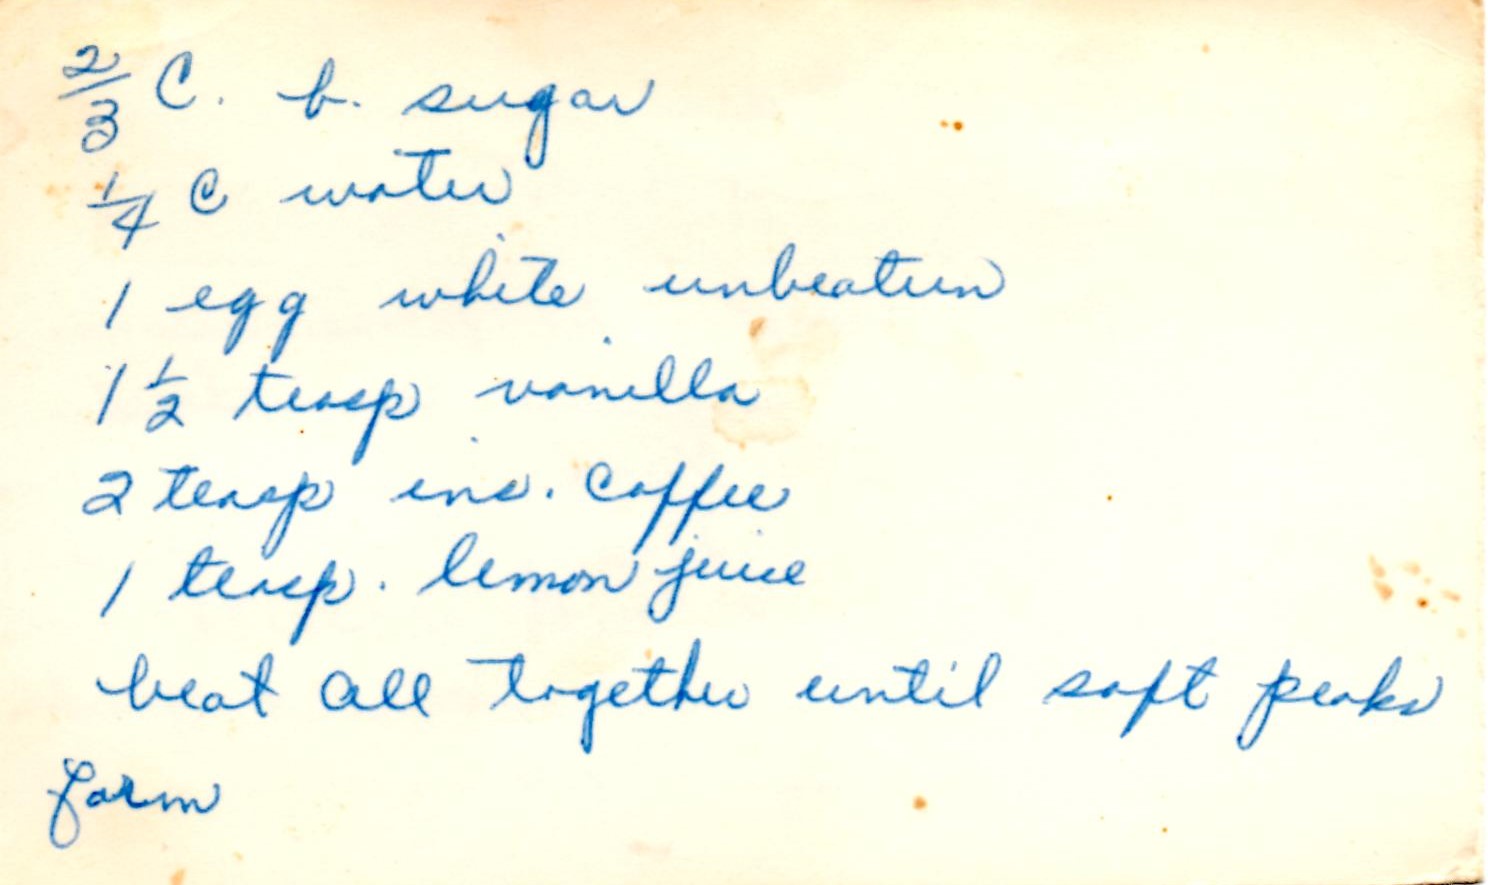 2/3 C. b. sugar
1/4 C water
1 egg white unbeaten
1 1/2 teasp vanilla
2 teasp ins. coffee
1 teasp. lemon juice
beat all together until soft peaks
form